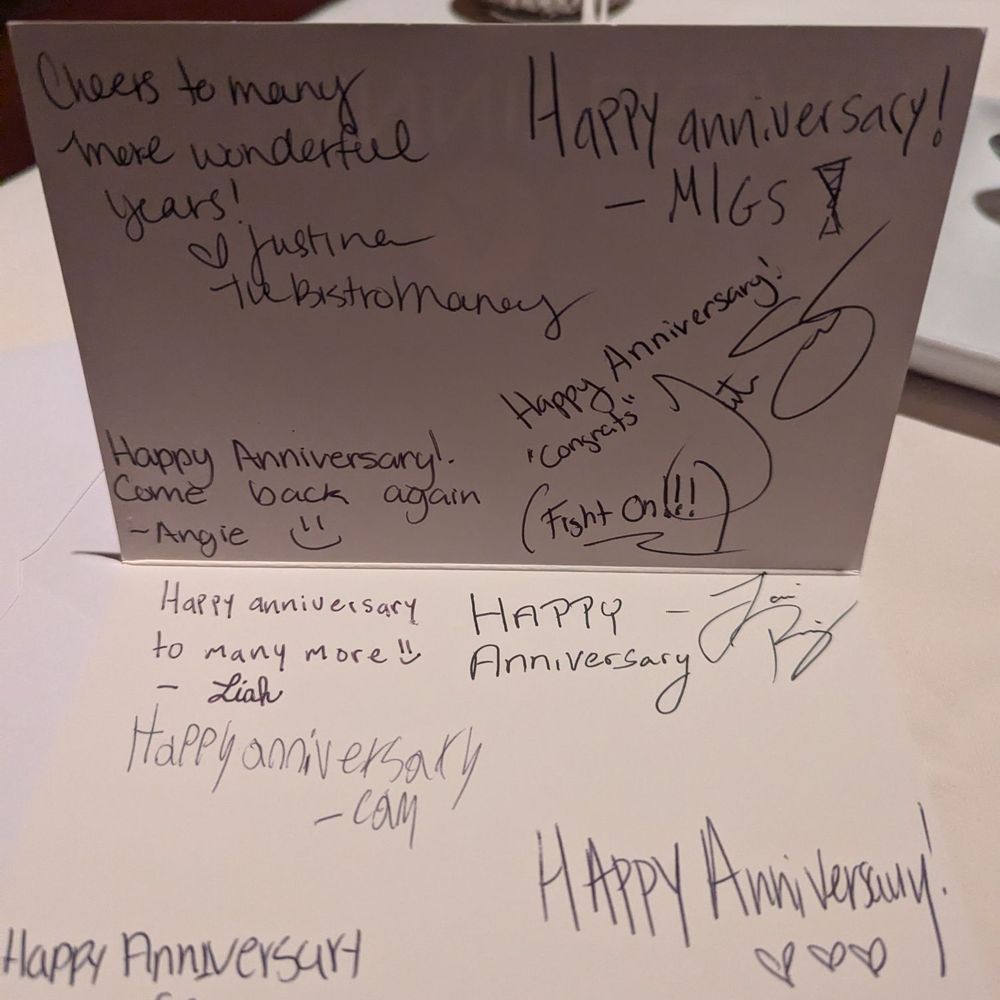 Cheers to many
more wonderful
years!
♡ Justine
Happy anniversary!
- MIGS
Happy Anniversary!
"Congrats"
(Fight On!!!)
Happy Anniversary!
Come back again
-Angie
Happy anniversary
to many more
- Liah
HAPPY
Anniversary
Happy anniversary
- Cam
HAPPY Anniversary!
♡♡♡
Happy Anniversary